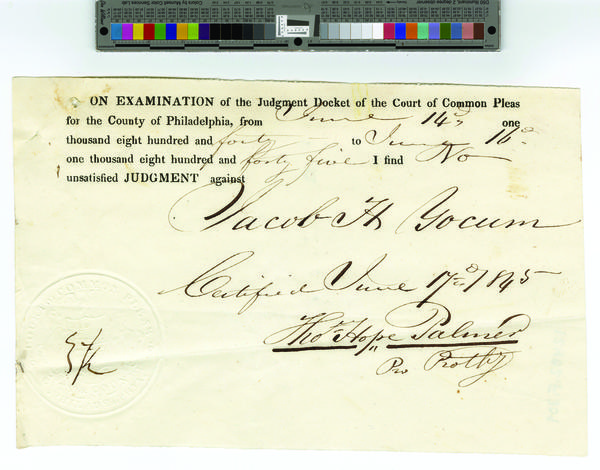 ON EXAMINATION of the Judgment Docket of the Court of Common Pleas
for the County of Philadelphia, from June 14th one
thousand eight hundred and forty to June 16th
one thousand eight hundred and forty five I find No
unsatisfied JUDGMENT against
Jacob H Yocum
Certified June 17th 1845
Thos Hope Palmer
Pro Prothy